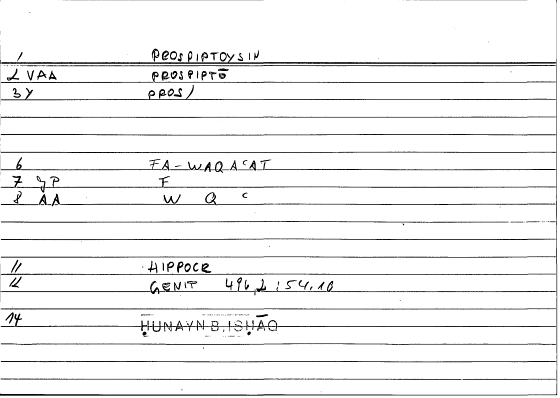 1 PROSPIPTOYSIN
2 VAA PROSPIPTŌ
3 Y PROS/
6 FA-WAQAʿAT
7 P F
8 AA W Q ʿ
11 HIPPOCR
12 GENIT 496,2:54.10
14 ḤUNAYN B. ISḤĀQ